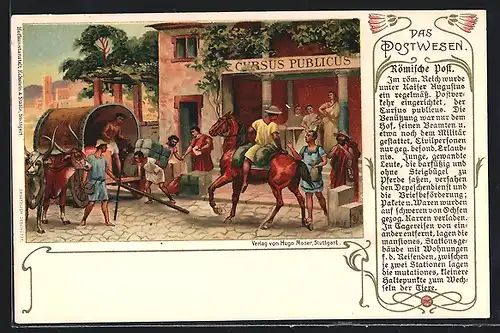 CVRSUS PUBLICUS
Verlag von Hugo Moser, Stuttgart.
DAS
POSTWESEN.
Römische Post.
Im röm. Reich wurde
unter Kaiser Augustus
ein regelmäß. Postver-
kehr eingerichtet, der
Cursus publicus. Die
Benützung war nur dem
Hof, seinen Beamten u.
etwa noch dem Militär
gestattet, Civilpersonen
nur geg. besond. Erlaub-
nis. Junge, gewandte
Leute, die barfüßig und
ohne Steigbügel zu
Pferde saßen, versahen
den Depeschendienst und
die Briefbeförderung;
Pakete u. Waren wurden
auf schweren von Ochsen
gezog. Karren verladen.
In Tagereisen von ein-
ander entfernt, lagen die
mansiones, Stationsge-
bäude mit Wohnungen
f. d. Reisenden, zwischen
je zwei Stationen lagen
die mutationes, kleinere
Haltepunkte zum Wech-
seln der Tiere.